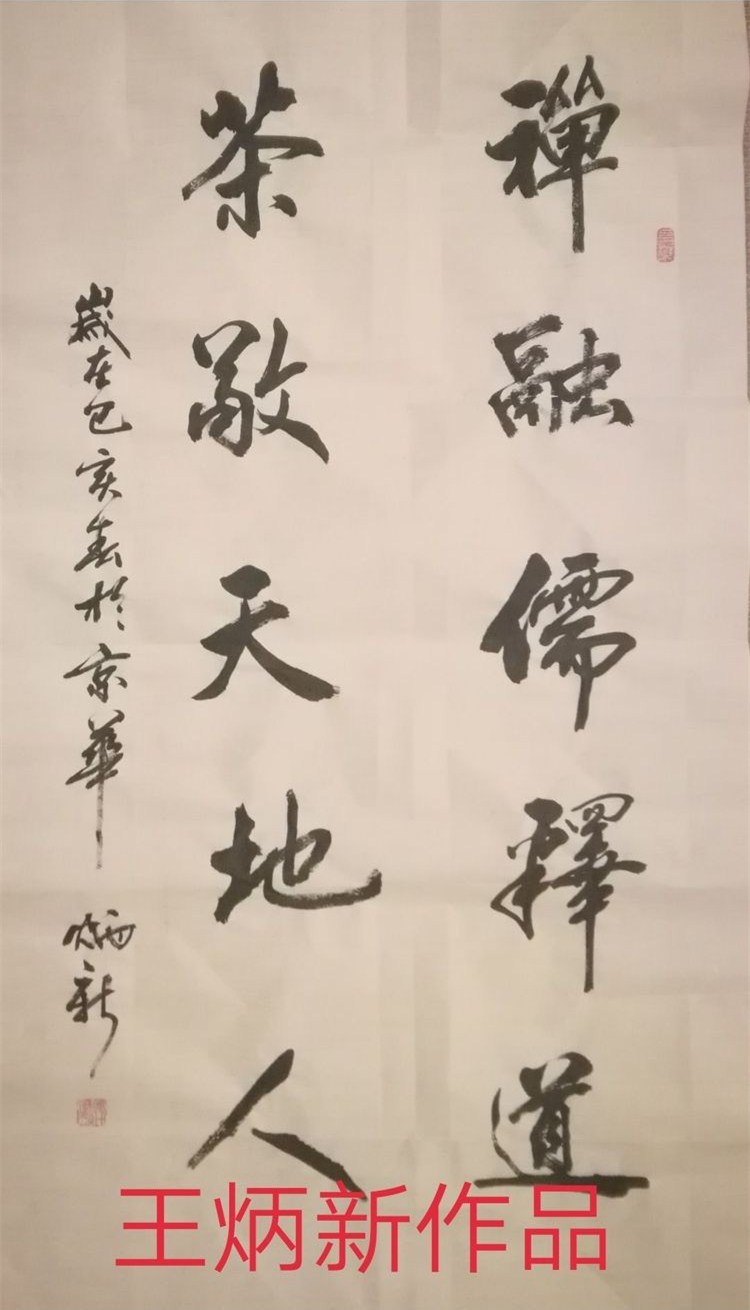 禪融儒釋道
茶敬天地人
歲在己亥春於京華 炳新
王炳新作品